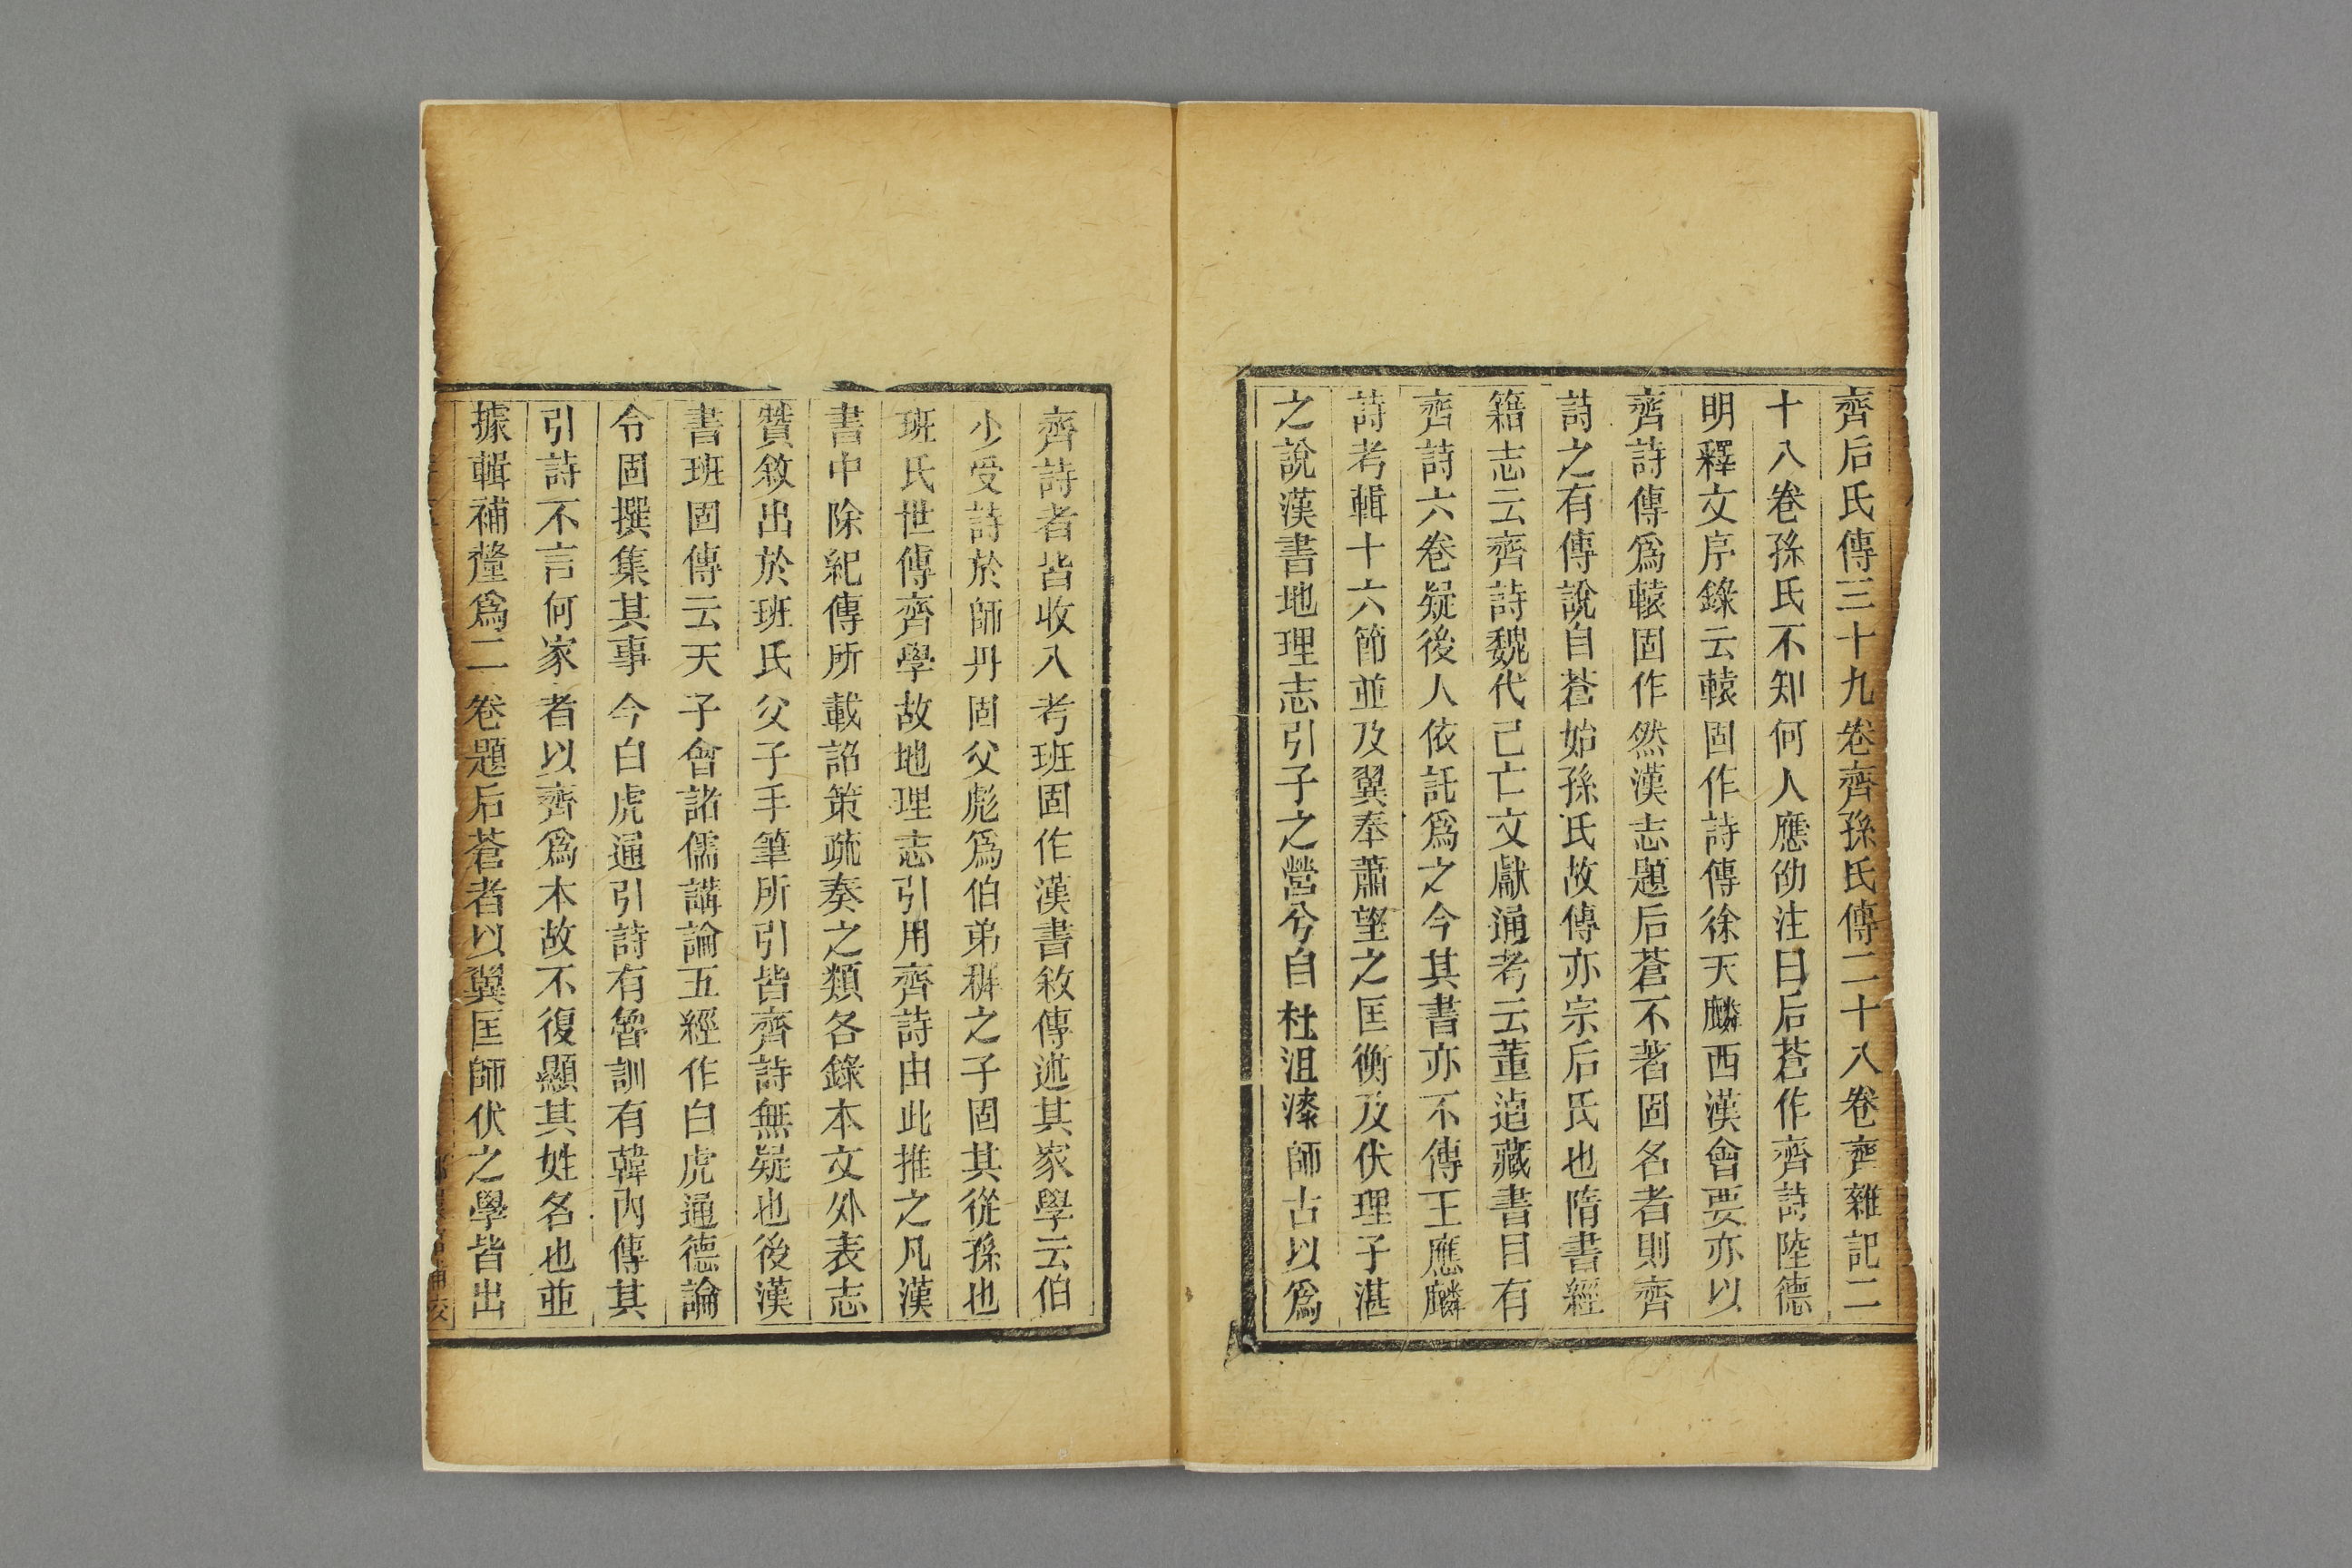 齊后氏傳三十九卷齊孫氏傳二十八卷齊雜記二
十八卷孫氏不知何人應劭注曰后蒼作齊詩陸德
明釋文序錄云轅固作詩傳徐天麟西漢會要亦以
齊詩傳爲轅固作然漢志題后蒼不著固名者則齊
詩之有傳說自蒼始孫氏故傳亦宗后氏也隋書經
籍志云齊詩魏代已亡文獻通考云董逌藏書目有
齊詩六卷疑後人依託爲之今其書亦不傳王應麟
詩考輯十六節並及翼奉蕭望之匡衡及伏理子湛
之說漢書地理志引子之營兮自杜沮漆師古以爲
齊詩者皆收入考班固作漢書敘傳述其家學云伯
少受詩於師丹固父彪爲伯弟穉之子固其從孫也
班氏世傳齊學故地理志引用齊詩由此推之凡漢
書中除紀傳所載詔策疏奏之類各錄本文外表志
贊敘出於班氏父子手筆所引皆齊詩無疑也後漢
書班固傳云天子會諸儒講論五經作白虎通德論
令固撰集其事今白虎通引詩有魯訓有韓內傳其
引詩不言何家者以齊爲本故不復顯其姓名也並
據輯補釐爲二卷題后蒼者以翼匡師伏之學皆出